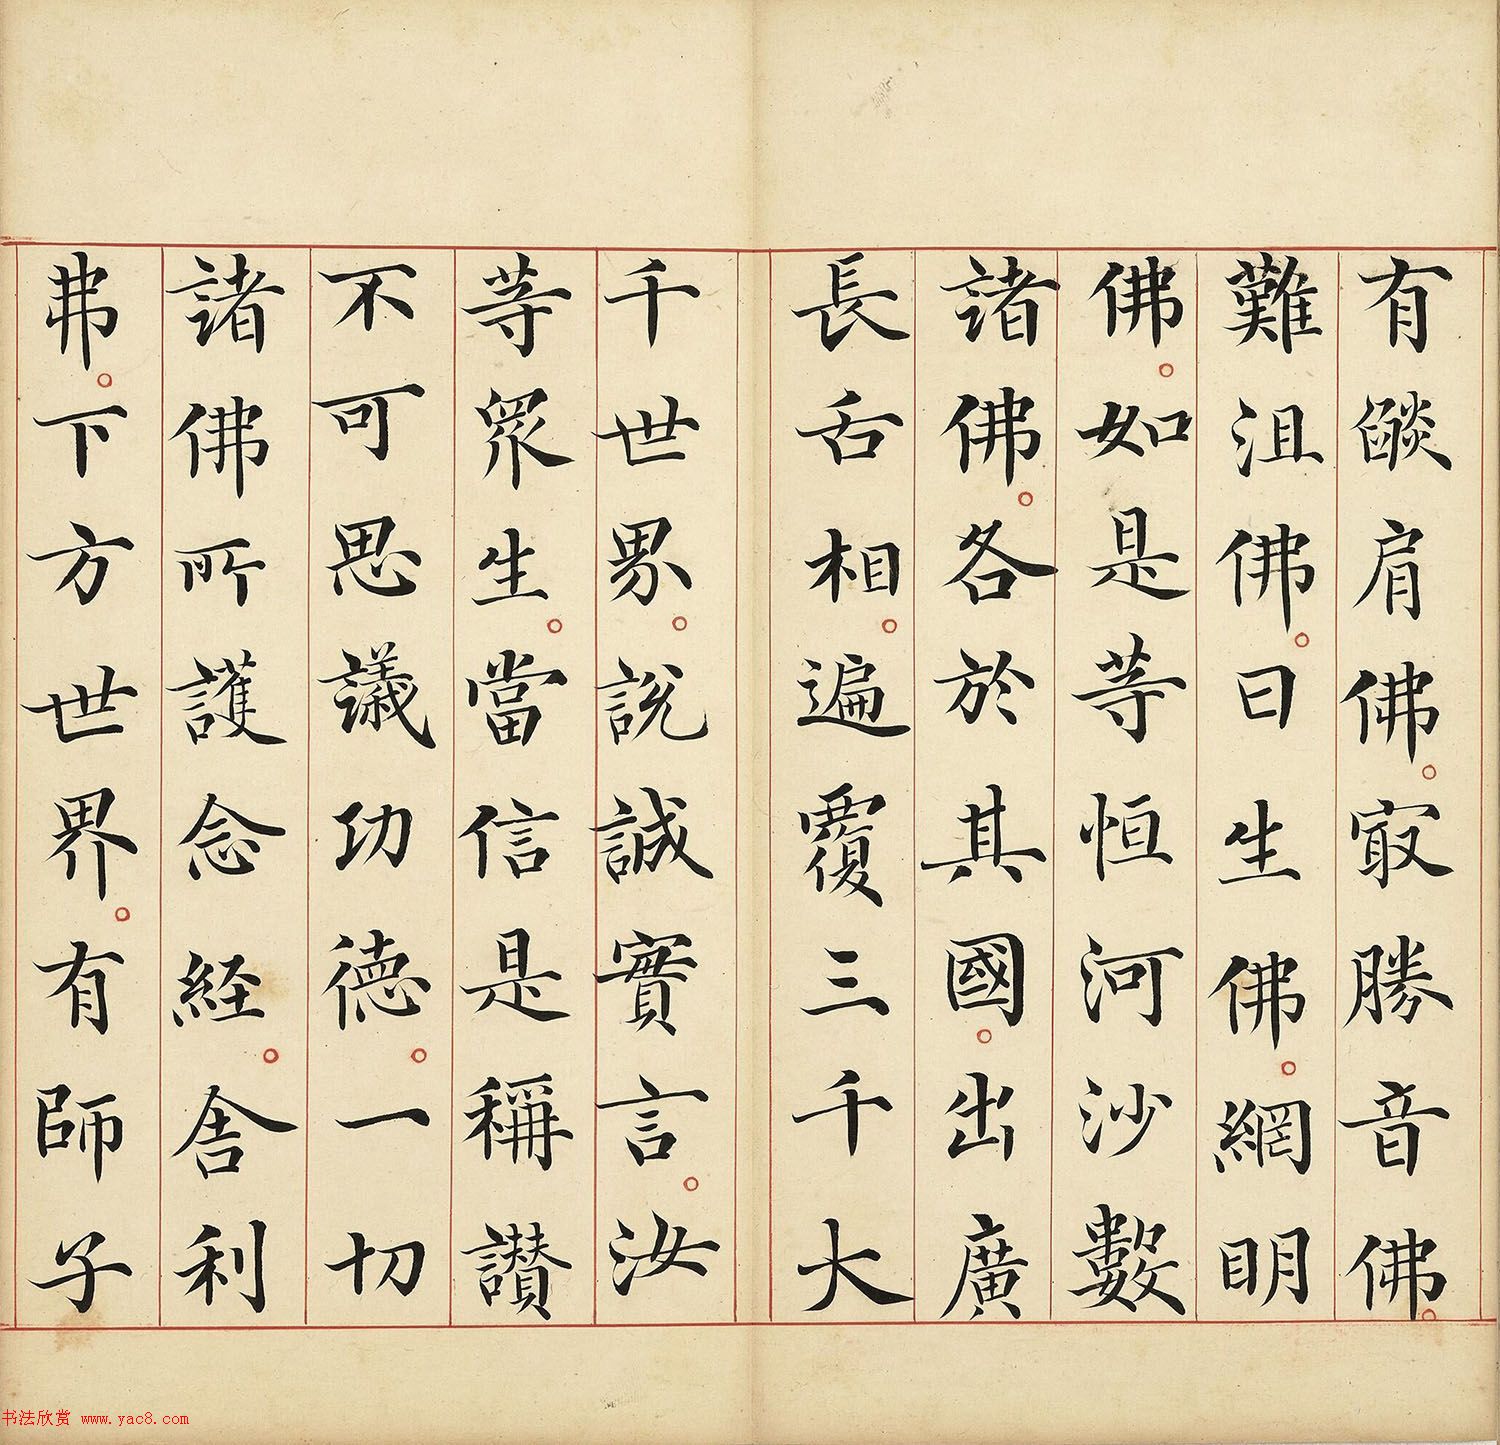 有燄肩佛。㝡勝音佛。
難沮佛。日生佛。網明
佛。如是等恒河沙數
諸佛。各於其國。出廣
長舌相。遍覆三千大
千世界。說誠實言。汝
等眾生。當信是稱讃
不可思議功德。一切
諸佛所護念経。舍利
弗。下方世界。有師子
书法欣赏 www.yac8.com